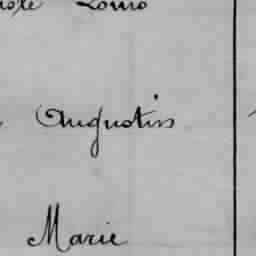 Louis
Augustin
Marie